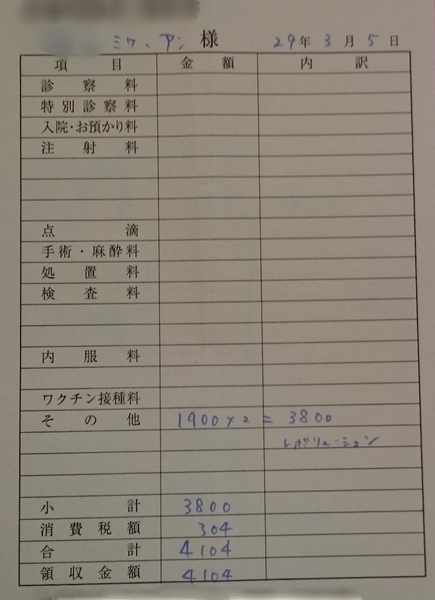 ミワ、アン 様 29年3月5日
項目 金額 内訳
診察料
特別診察料
入院・お預かり料
注射料
点滴
手術・麻酔料
処置料
検査料
内服料
ワクチン接種料
その他 1900×2=3800
レボリューション
小計 3800
消費税額 304
合計 4104
領収金額 4104